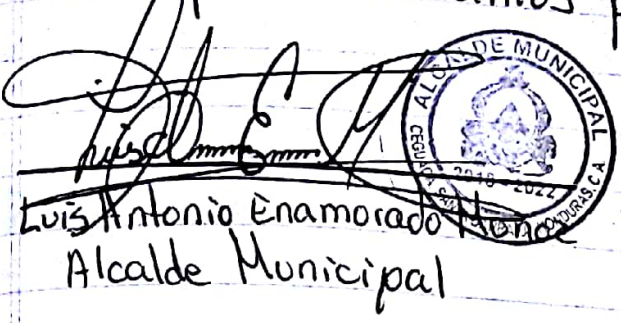 Luis Antonio Enamorado Muñoz
Alcalde Municipal
ALCALDE MUNICIPAL
2018 - 2022
HONDURAS, C.A.